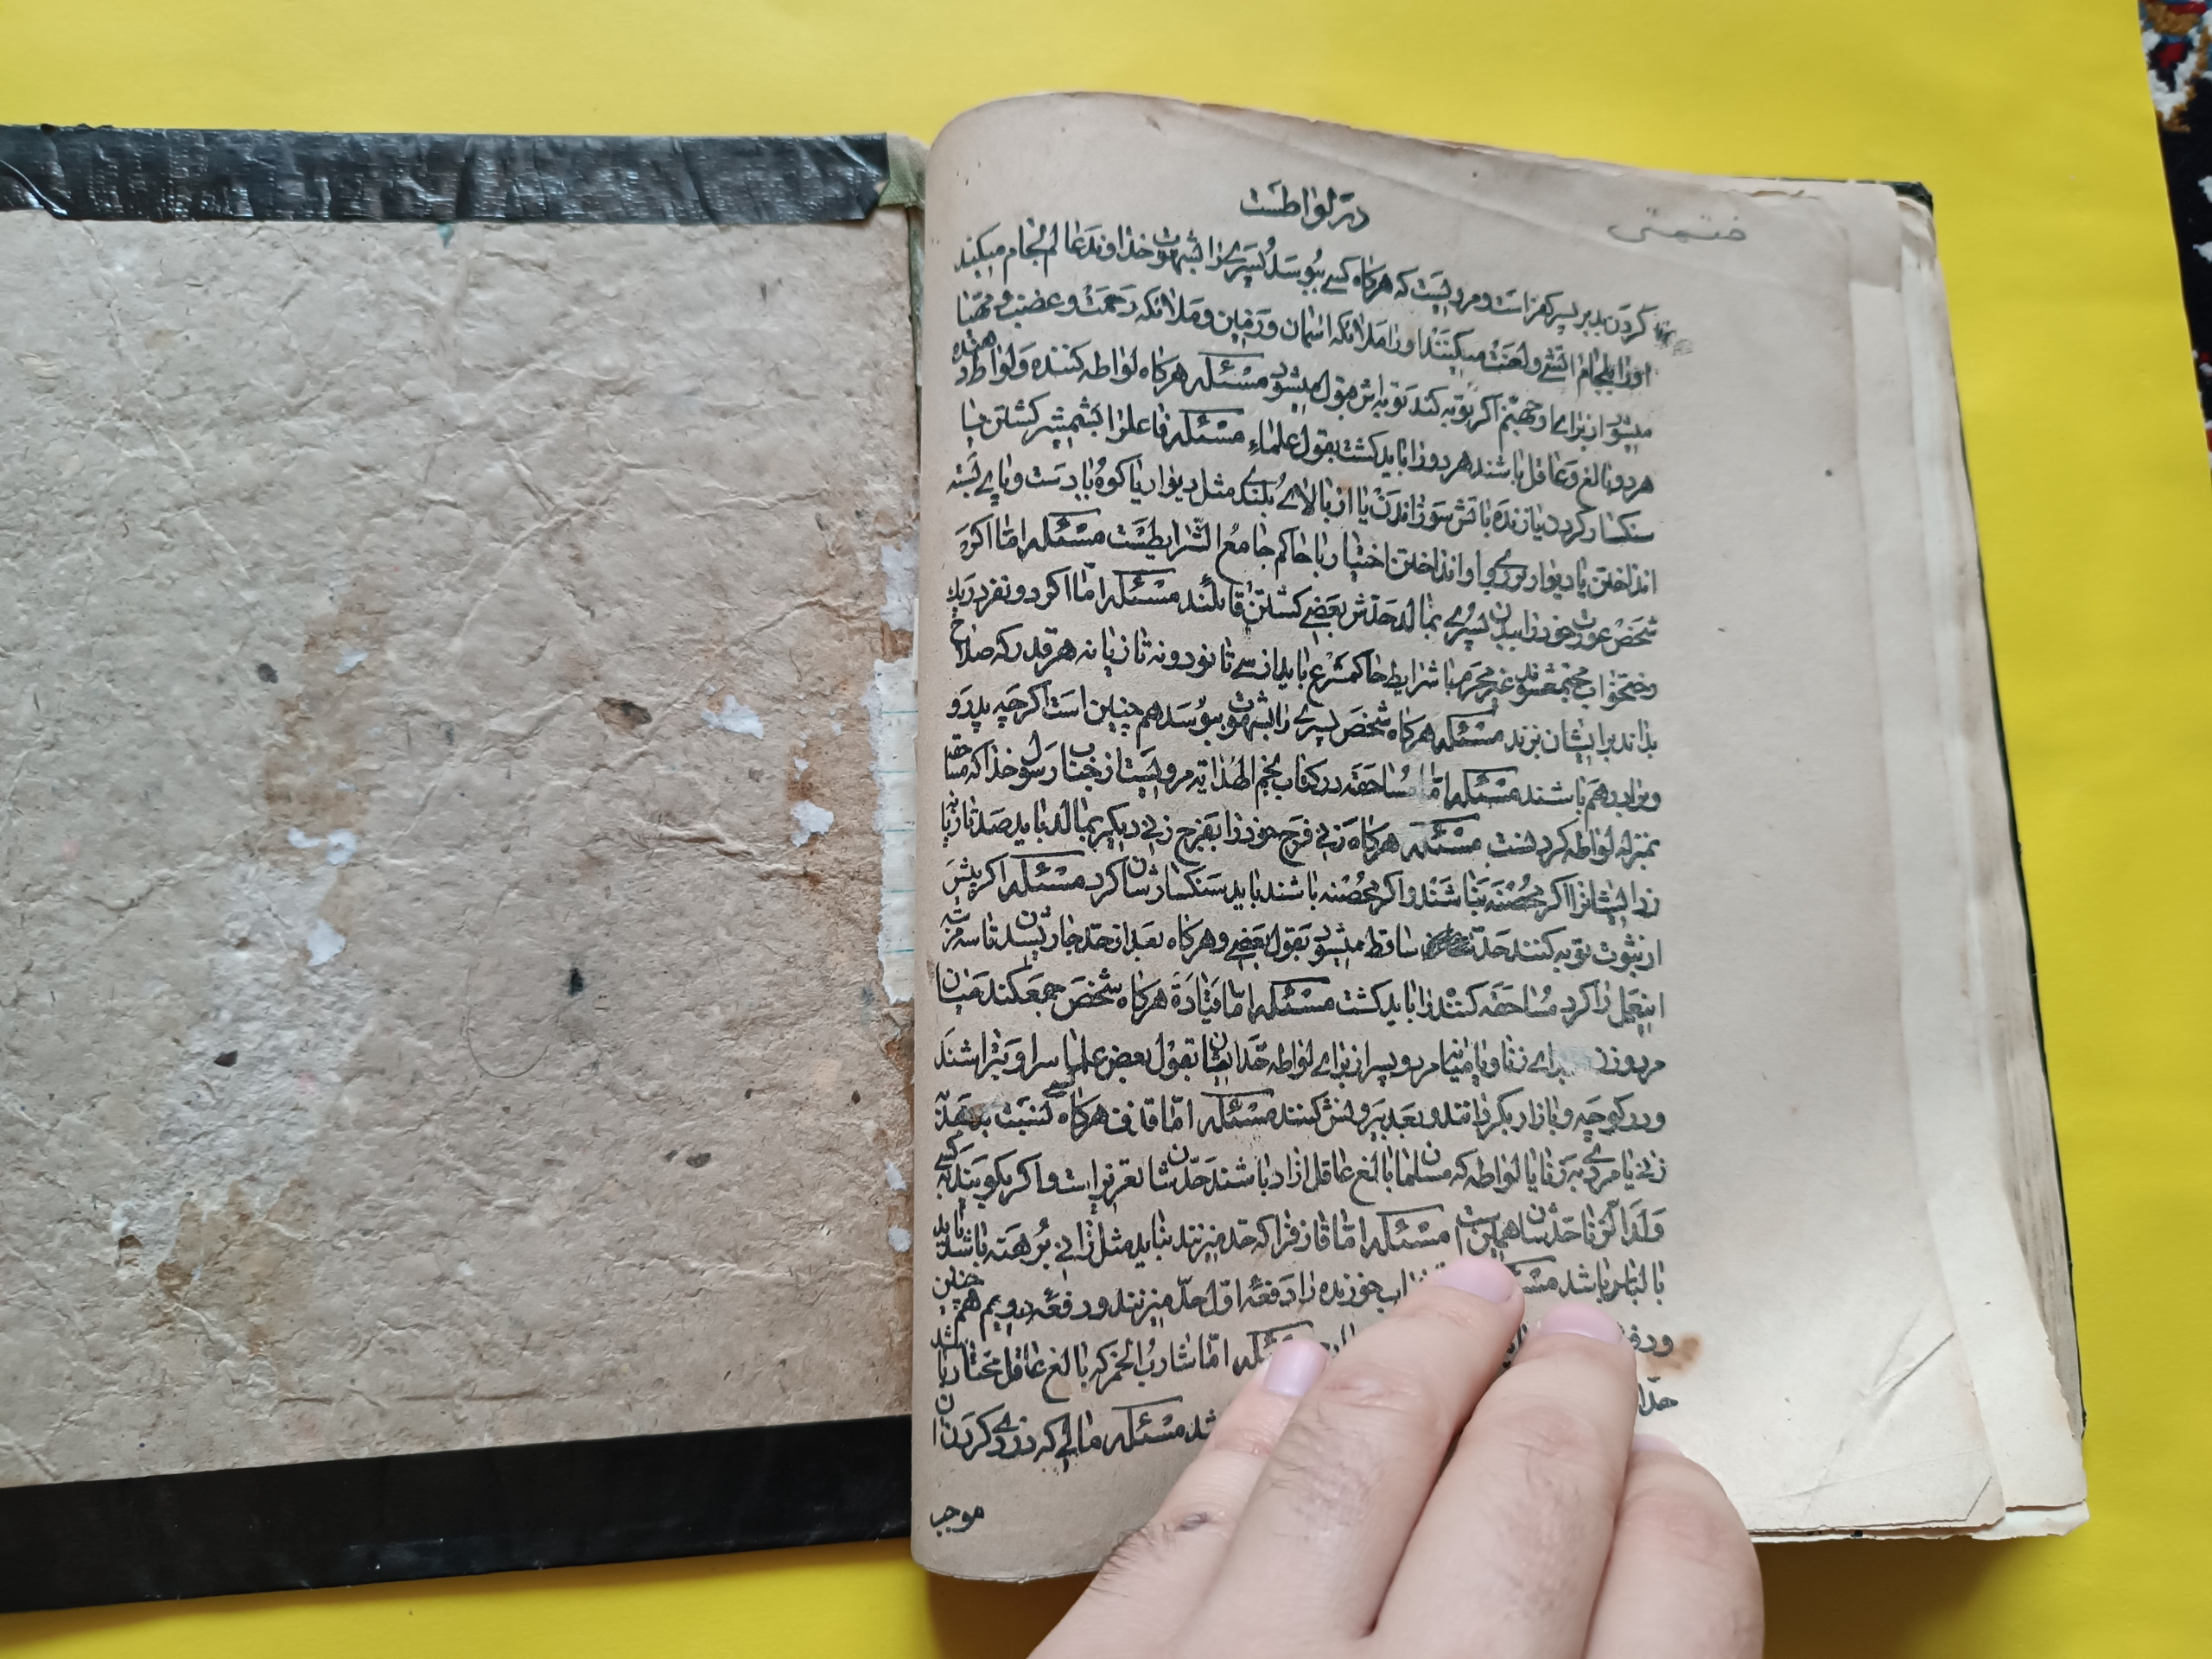 در لواطست
ضتمتی
کردن بدبر پسر کفر است و مرویست که هرکاه کسی ببوسد پسری را بشهوت خداوند عالم لجام میکند
او را بلجام اتشی و لعنت میکنند او را ملائکه اسمان و زمین و ملائکه رحمت و غضب و مهیا
میشود از برای او جهنم اکر توبه کند توبه اش قبول میشود مسئله هرکاه لواطه کننده و لواطه دهنده
هر دو بالغ و عاقل باشند هر دو را باید کشت بقول علماء مسئله فاعل را بشمشیر کشتن یا
سنکسار کردن یا زنده باتش سوزاندن یا از بالای بلندی مثل دیوار یا کوه با دست و پای بسته
انداختن یا دیوار بروی او انداختن اختیار با حاکم جامع الشرایطست مسئله اما اکر
شخص عورت خود را ببدن پسری بمالد حدش بعضی کشتن قایلند مسئله اما اکر دو نفر در یک
رختخواب مجتمع شوند غیر محرم با شرایط حاکم شرع باید از سی تا نود و نه تازیانه هر قدر که صلاح
بداند بر ایشان بزند مسئله هرکاه شخص پسری را بشهوت ببوسد هم چنین است اکر چه پدر و
برادر هم باشند مسئله اما مساحقه در کتاب نجم الهدایه مرویست از جناب رسول خدا که مساحقه
بمنزله لواطه کردنست مسئله هرکاه زنی فرج خود را بفرج زنی دیکر بمالد باید صد تازیانه
زد ایشانرا اکر محصنه نباشند و اکر محصنه باشند باید سنکسارشان کرد مسئله اکر پیش
از ثبوت توبه کنند حد ساقط میشود بقول بعضی و هرکاه بعد از حد جاری شدن تا سه مرتبه
اینعمل را کرد مساحقه کننده را باید کشت مسئله اما قیادة هرکاه شخص جمع کند میان
مرد و زن برای زنا و یا میان مرد و پسر از برای لواطه حد ایشان بقول بعض علما سر او بتراشند
و در کوچه و بازار بکردانند و بعد بیرونش کنند مسئله اما قاذف هرکاه کسی نسبت بدهد
زنی یا مردی به زنا یا لواطه که مسلمان بالغ عاقل ازاد باشند حدشان تعزیر است و اکر بکویند به کسی
ولد الزنا حدشان همین است مسئله اما قاذف را که حد میزنند نباید مثل زانی برهنه باشد باید
با لباس باشد خورده را دفعه اول حد میزنند و دفعه دویم هم چنین
و در مسئله اما شارب الخمر که بالغ عاقل مختار باشد
حد مسئله مالی که دزدی کردن ان
موجب